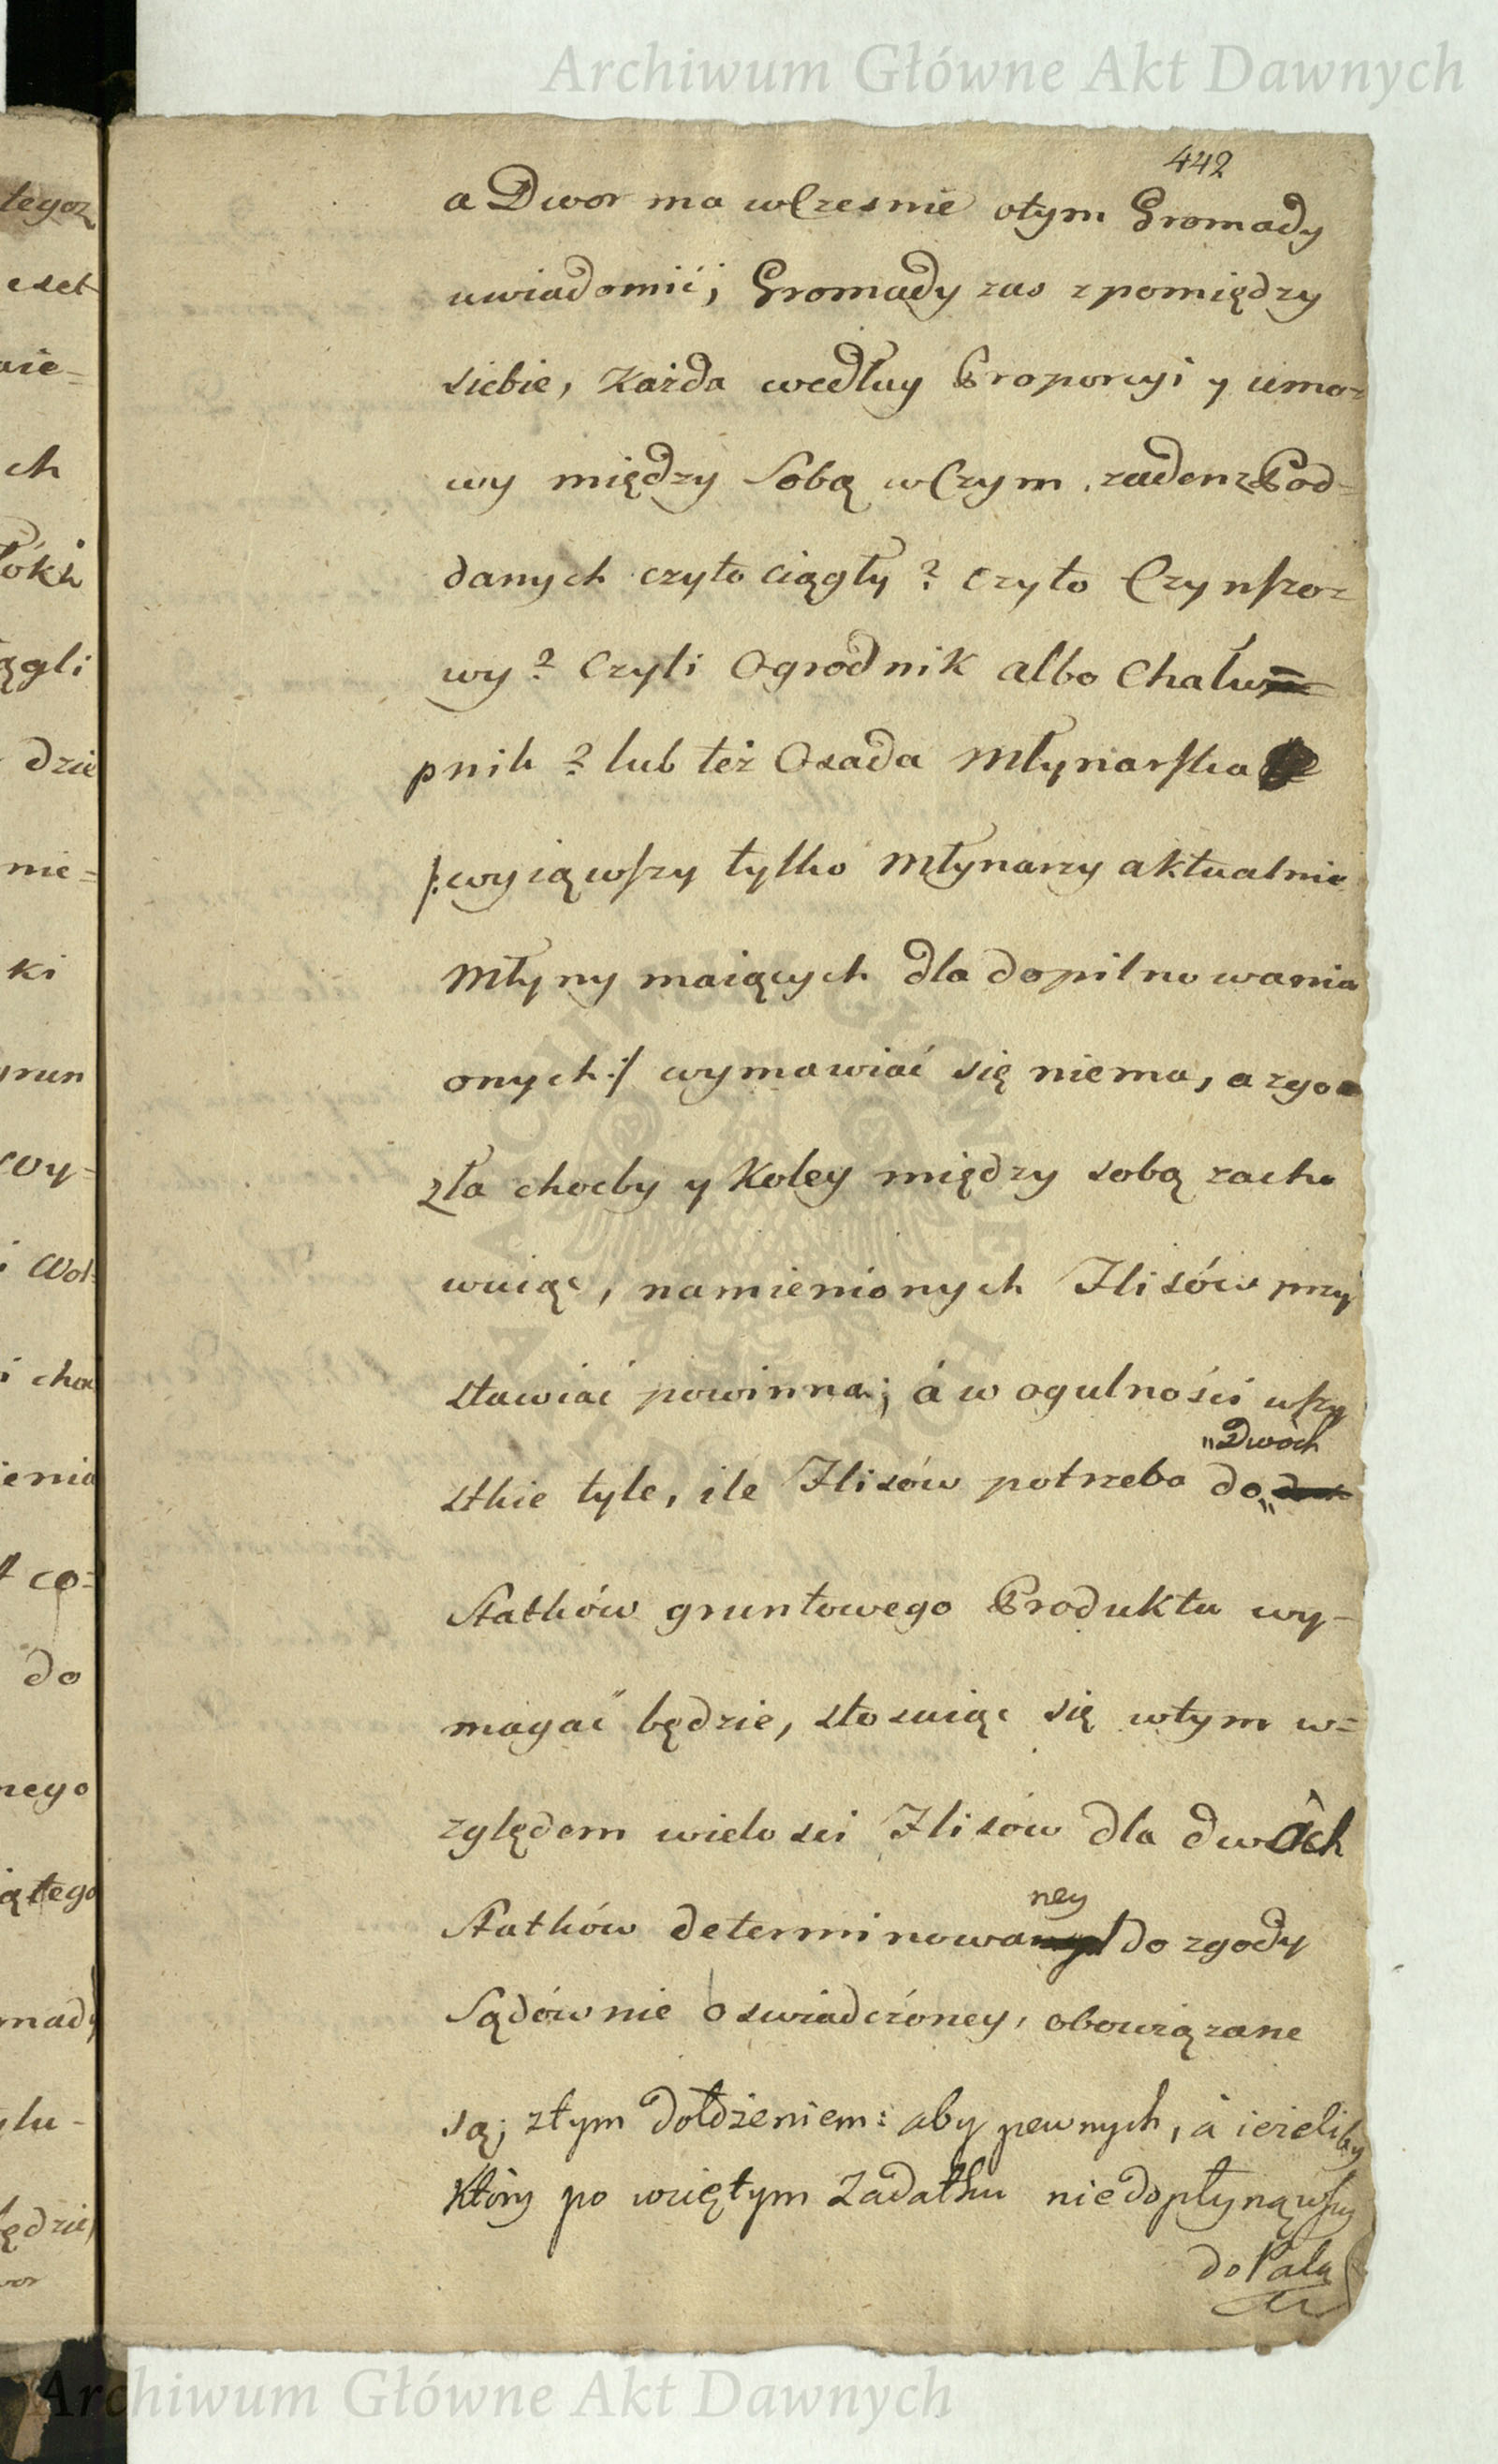 Archiwum Główne Akt Dawnych
442
a Dwor ma wCzesnie otym Gromady
uwiadomić; Gromady zas z pomiędzy
siebie, Każda według Proporcyi y umo=
wy między Sobą wCzym żaden z Pod=
danych czyto ciągły? czyto Czynszo=
wy? Czyli Ogrodnik albo Chału=
pnik? lub też Osada Młynarska
/:wyiąwszy tylko Młynarzy aktualnie
Młyny maiących dla dopilnowania
onych:/ wymawiać się niema, a zgo=
zła choćby y Koley między sobą zacho
wuiąc, namienionych Flisów przy
stawiać powinna; á w ogulności wszy
"Dwóch
stkie tyle, ile Flisów potrzeba do"
Statków gruntowego Produktu wy-
magać będzie, stosuiąc się wtym w=
zględem wielosci Flisów dla dwóch
ney
Statków determinowa do zgody
Sądównie oswiadczóney, obowiązane
są; ztym dołożeniem: aby pewnych, á ieżeliby
Który po wziętym Zadatku niedopłynąwszy
do Palu
tegoż
eset
nie=
ch
łóki
ągli
dzie
nie=
ki
grun
wy=
i Wol
i cho
ienia
t co=
do
nego
iątego
mady
ylu-
ędzie
wor
Archiwum Główne Akt Dawnych
ARCHIWUM GŁÓWNE AKT DAWNYCH